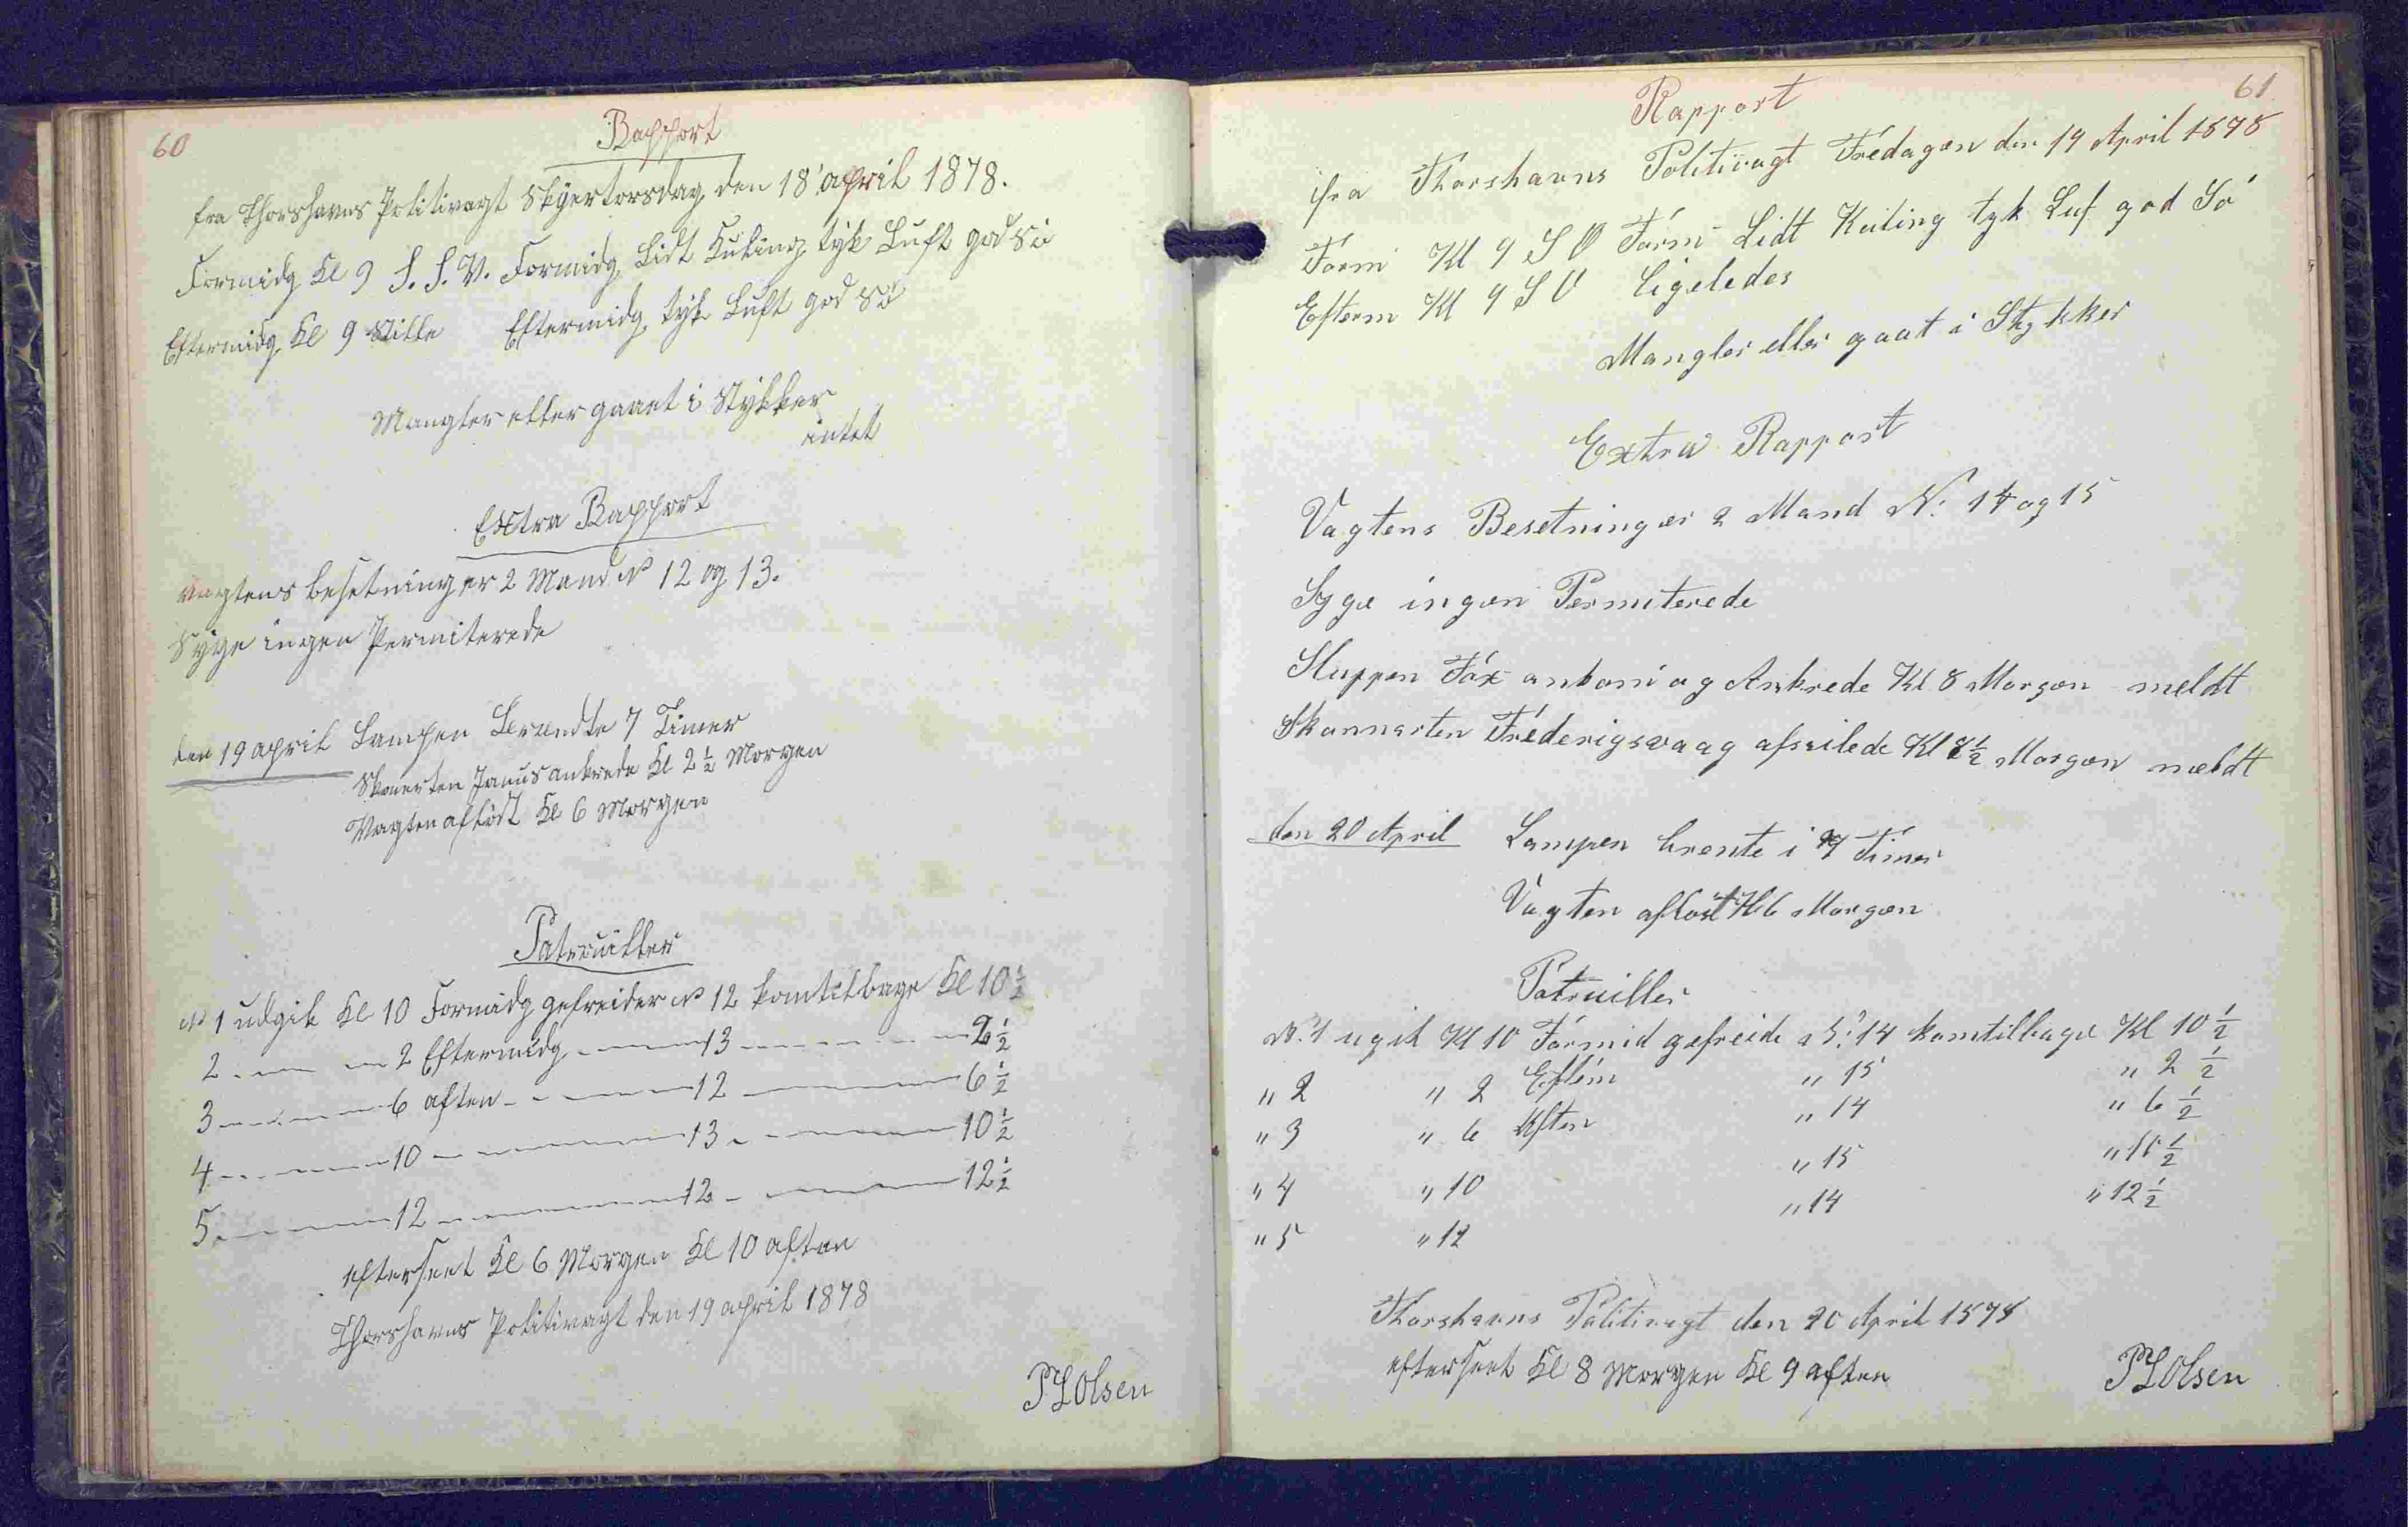 60
Rapport
fra Thorshavns Politivagt Skjertorsdag den 18' april 1878.
Formidg Kl 9 S.S.V. Formidg Lidt Kuling tyk Luft god Sö
Eftermidg Kl 9 Stille Eftermidg tyk Luft god Sö
Mangler eller gaaet i Stykker
intet
Extra Rapport
vagtens besetning er 2 Mand No 12 og 13.
Syge ingen Permiterede
den 19 april Lampen Brændte 7 Timer
Skonerten Janus ankrede Kl 2½ Morgen
Vagten aflöst Kl 6 Morgen
Patruiller
No 1 udgik Kl 10 Formidg gefreider No 12 kom tilbage Kl 10½
2 — — 2 Eftermidg — 13 — 2½
3 — — 6 aften — 12 — 6½
4 — — 10 — 13 — 10½
5 — — 12 — 12 — 12½
efterseet Kl 6 Morgen Kl 10 aften
Thorshavns Politivagt den 19 april 1878
PLOlsen
61
Rapport
fra Thorshavns Politivagt Fredagen den 19 April 1878
Form Kl 9 S O Form Lidt Kuling tyk Luf god Sö
Efterm Kl 9 S O Ligeledes
Mangler eller gaat i Stykker
Extra Rapport
Vagtens Besetning er 2 Mand N: 14 og 15
Syge ingen Permiterede
Sluppen Fox ankom og Ankrede Kl 8 Morgen meldt
Skonnarten Frederigsvaag afseilede Kl 8½ Morgen meldt
den 20 April Lampen brente i 7 Timer
Vagten aflöst Kl 6 Morgen
Patruiller
N: 1 ugik Kl 10 Formid gefreide N: 14 komtilbage Kl 10½
" 2 " 2 Eftem " 15 " 2½
" 3 " 6 Aften " 14 " 6½
" 4 " 10 " 15 " 10½
" 5 " 12 " 14 " 12½
Thorshavns Politivagt den 20 April 1878
efterseet Kl 8 Morgen Kl 9 aften
PLOlsen